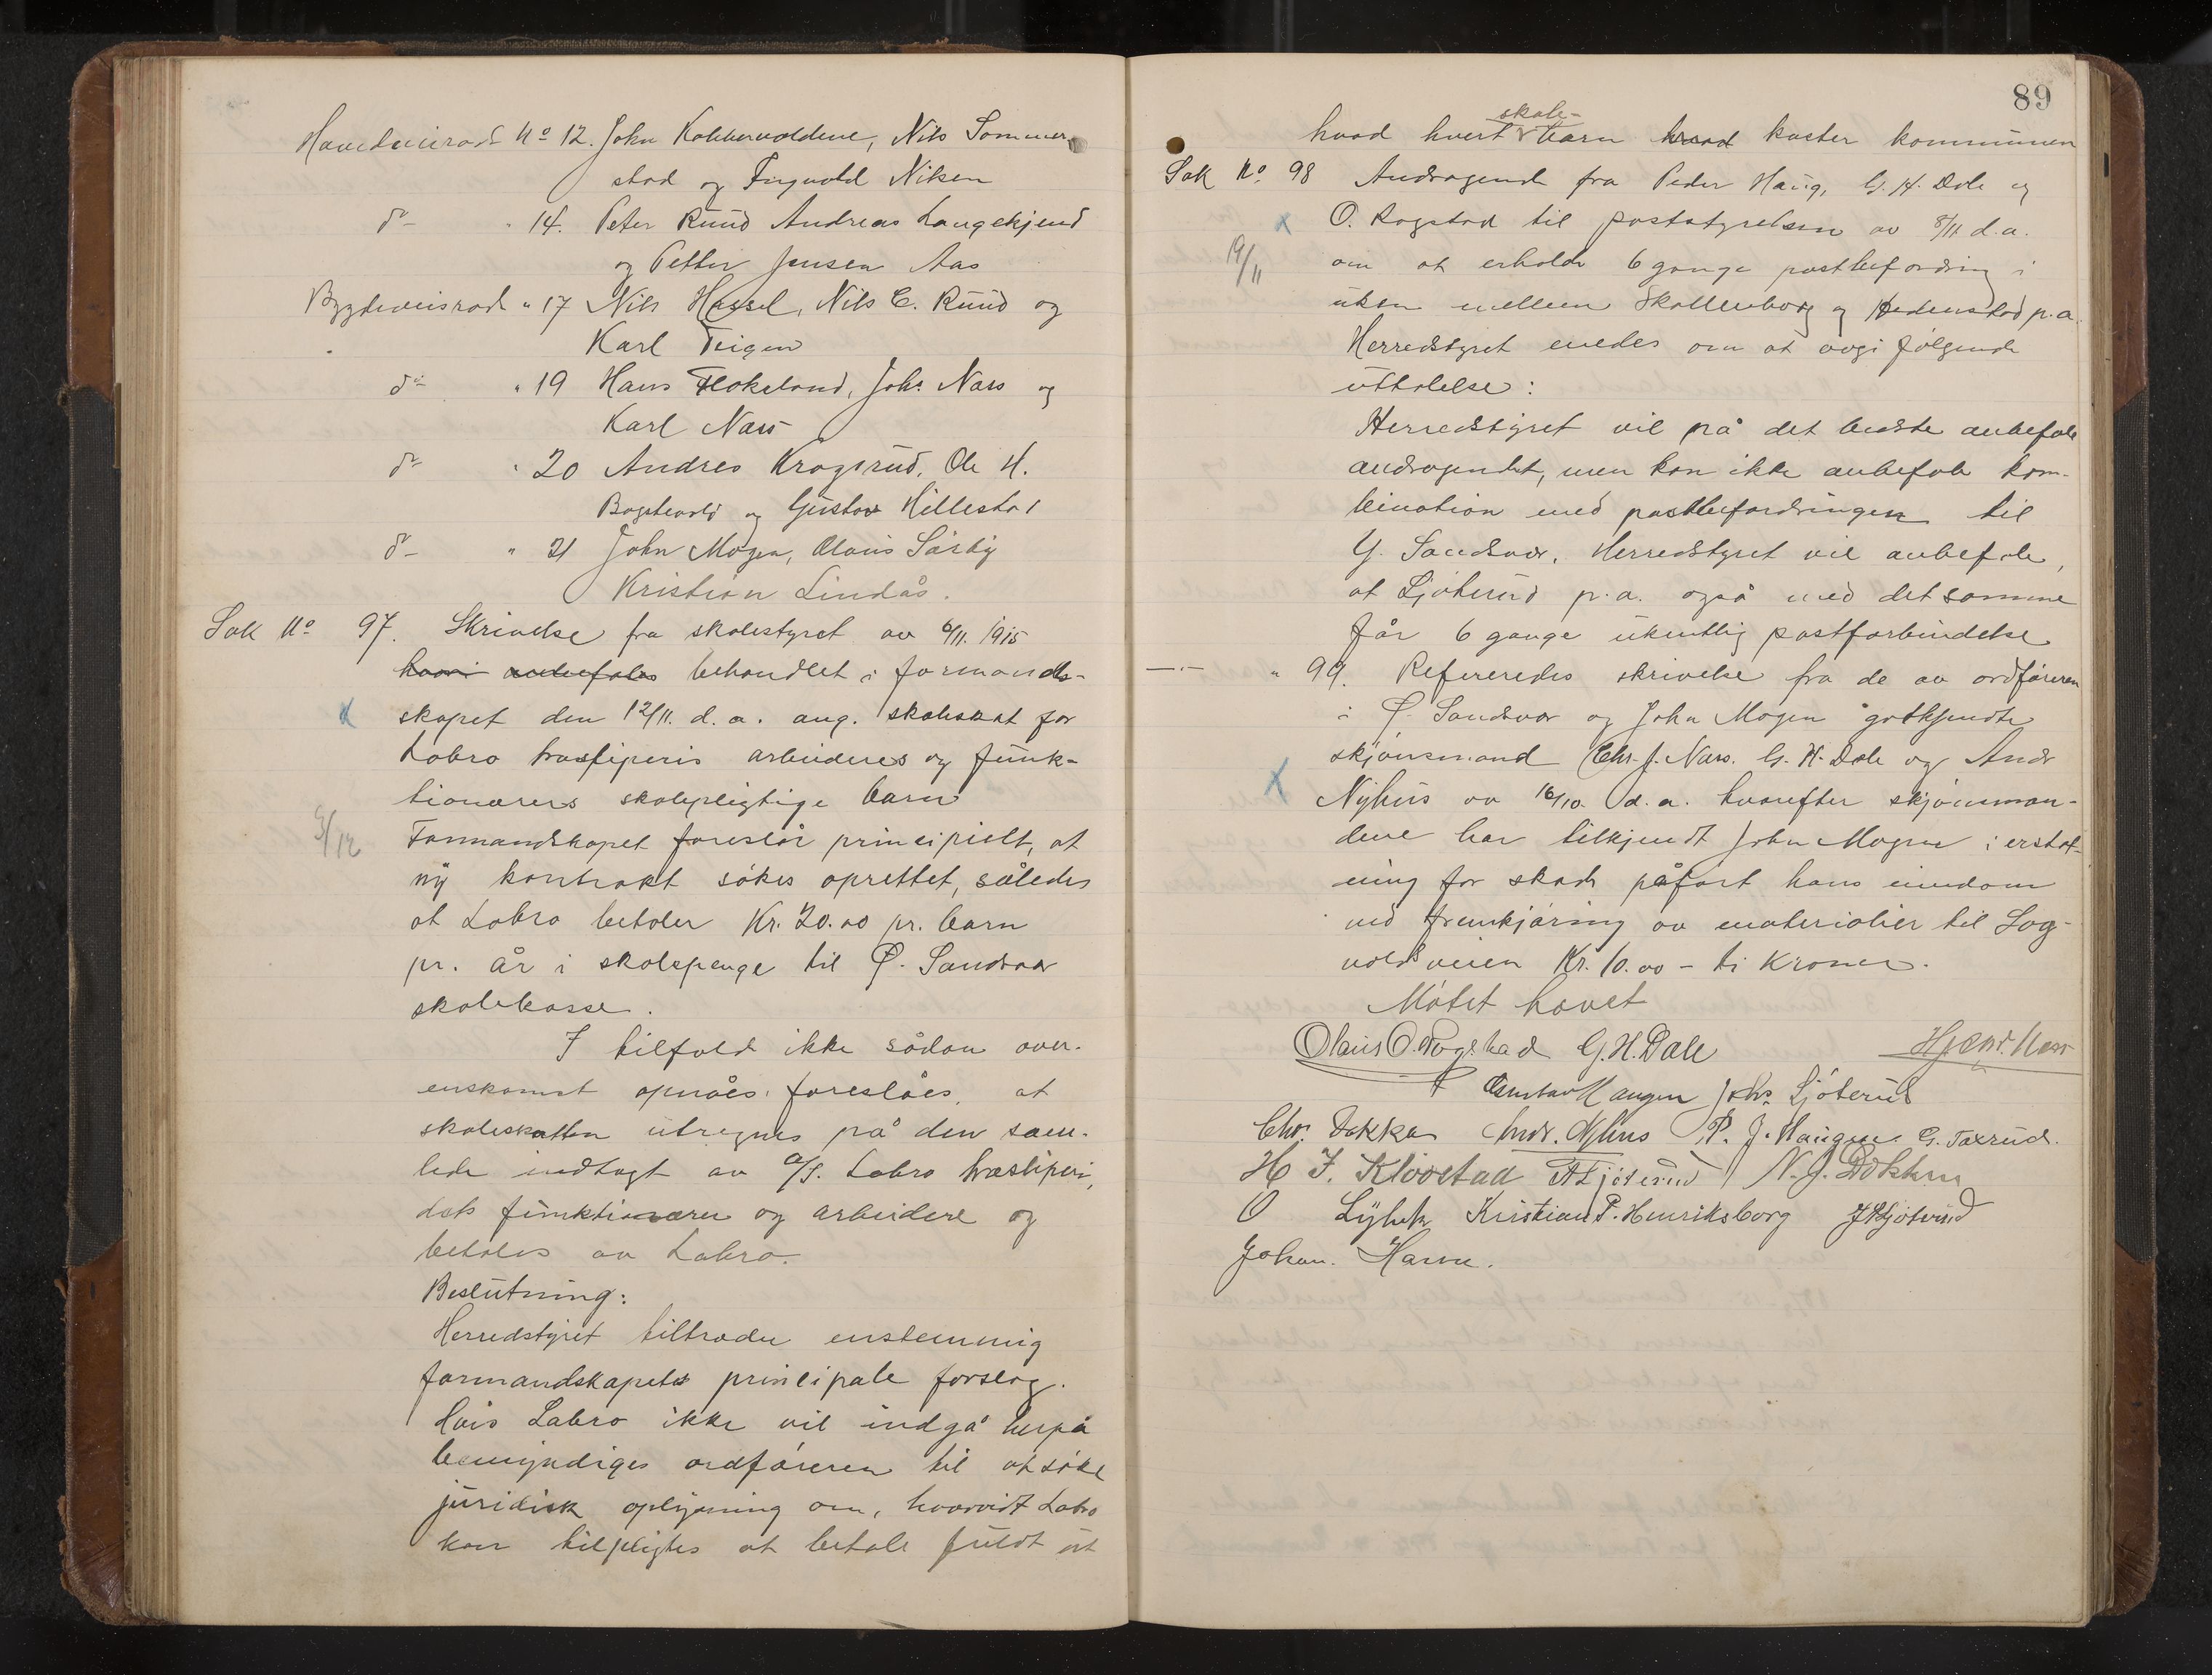 Hovedveirode No 12. John Kobbervoldene, Nils Sommer-
stad og Ingvald Nilsen
do " 14. Peter Ruud Andreas Langekjend
og Petter Jensen Aas
Bygdeveisrode " 17 Nils Hassel, Nils C. Ruud og
Karl Teigen
do " 19 Hans Flokeland, Johs Næss og
Karl Næss
do " 20 Andreas Krogsrud, Ole H.
Bogstevold og Gustav Hillestad
do " 21 John Mogen, Olaus Sörby
Kristian Lindås.
Sak No 97. Skrivelse fra skolestyret av 6/11. 1915
hvori anbefales behandlet i formands-
skapet den 12/11. d.a. ang. skoleskat for
Labro træsliperis arbeideres og funk-
tionærers skolepligtige barn
5/12 Formandskapet foreslår principielt, at
ny kontrakt sökes oprettet, således
at Labro betaler Kr. 20.00 pr. barn
pr. år i skolepenge til Ö. Sandsvær
skolekasse.
I tilfælde ikke sådan over-
enskomst opnåes, foreslåes, at
skoleskatten utregnes på den sam-
lede indtægt av A/S. Labro træsliperi,
dets funktionærer og arbeidere og
betales av Labro.
Beslutning:
Herredstyret tiltræder enstemmig
formandskapets principale forslag.
Hvis Labro ikke vil indgå herpå
bemyndiges ordföreren til at söke
juridisk oplysning om, hvorvidt Labro
kan tilpligtes at betale fuldt ut
89
skole-
hvad hvert barn hvad koster kommunen
Sak No. 98 Andragende fra Peder Haug, G. H. Dale og
O. Rogstad til poststyrelsen av 8/11 d.a.
19/11 om at erholde 6 gange postbefordring i
uken mellem Skollenborg og Hedenstad p.a.
Herredstyret enedes om at avgi fölgende
uttalelse:
Herredstyret vil på det bedste anbefale
andragendet, men kan ikke anbefale kom-
bination med postbefordringen til
Y. Sandsvær. Herredstyret vil anbefale,
at Ljöterud p.a. også med det samme
får 6 gange ukentlig postforbindelse
—"— " 99. Refereredes skrivelse fra de av ordföreren
i Ö. Sandsvær og John Mogen godkjendte
skjönsmænd Chr. J. Næss. G. H. Dale og Andr
Nyhus av 16/10. d.a. hvorefter skjönsmæn-
dene har tilkjendt John Mogen i erstat-
ning for skade påfört hans eiendom
ved fremkjöring av materialier til Log-
voldsveien Kr. 10.00 - ti Kroner.
Mötet hævet
Olaus O. Rogstad G. H. Dale
Gustav Haugen Johs. Ljöterud
Chr. Dokka Andr. Nyhus P. J. Haugen. G. Taxrud.
H J. Klovstad A Ljöterud N. J. Dokken
O Lybek Kristian P. Henriksborg J Ljöterud
Johan. Harve.